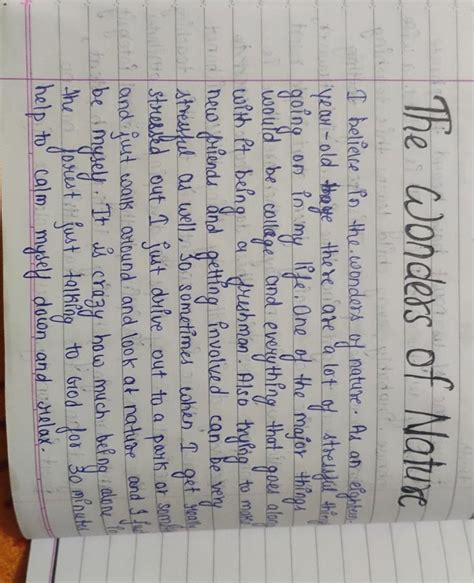 The Wonders of Nature
I believe in the wonders of nature. As an
year-old there are a lot of stressful
going on in my life. One of the major things
would be college and everything that goes
with it being a freshman. Also trying to make
new friends and getting involved can be very
stressful as well. So sometimes when I get
stressed out I just drive out to a park or
and just walk around and look at nature and
be myself. It is crazy how much being alone
the forest just talking to God for 30
help to calm myself down and relax.